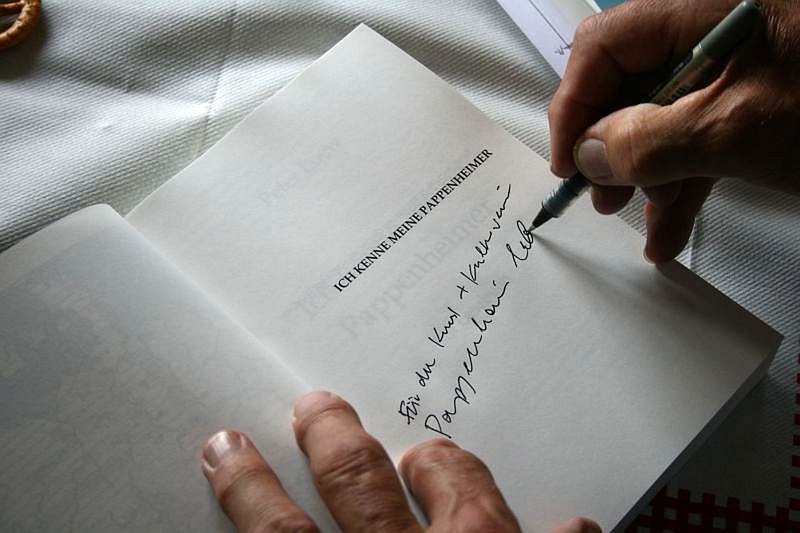 ICH KENNE MEINE PAPPENHEIMER
Für den Kunst + Kulturverein
Pappenheim